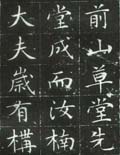 前山草堂先
堂成而汝楠
大夫歲有構